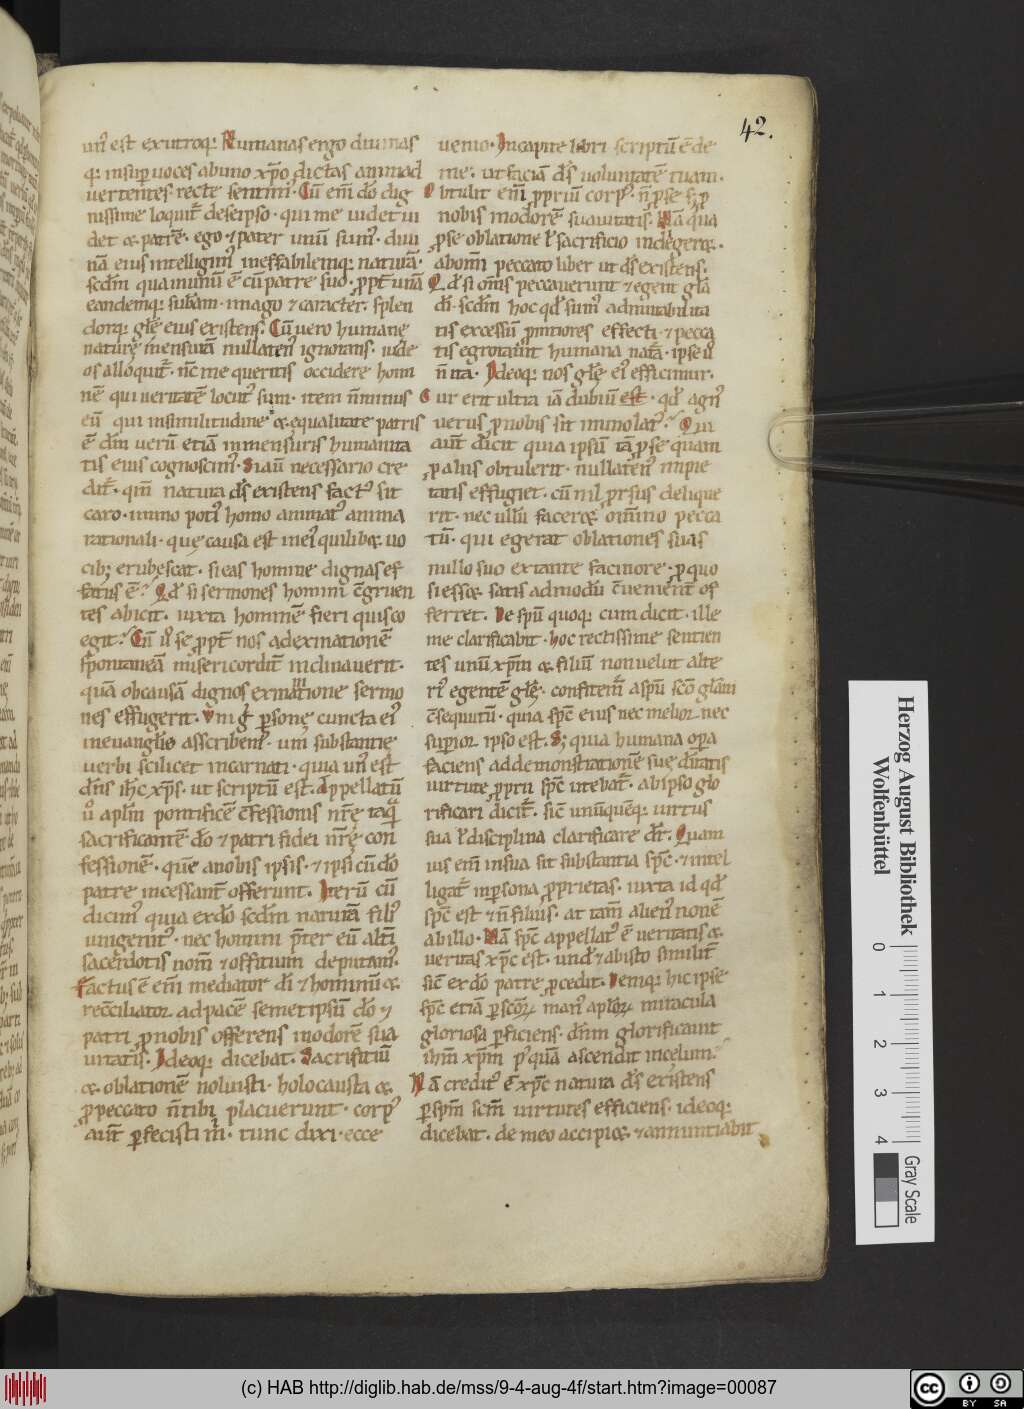 42.
un᷒ est ex utroq; Humanas ergo diuinas
q; insup uoces ab uno xp̄o dictas animad
uertentes recte sentim᷒. Cū em̄ dō dig
nissime loquit̄ de se ipso. qui me uidet ui
det & patrē. ego & pater unū sum᷒. diui
nā eius intelligim᷒ ineffabilemq; naturā.
scdm̄ quam unū ē cū patre suo. ꝓpt̄ unā
eandemq; subam. imago & caracter. splen
dorq; glę̄ eius existens. Cū uero humanę
naturę mensurā nullaten᷒ ignorans. iude
os alloquit̄. nc̄ me queritis occidere homi
nē qui ueritatē locut᷒ sum. item n̄ minus
eū qui in similitudine & equalitate patris
ē dm̄ uerū etiā in mensuris humanita
tis eius cognoscim᷒. Siaū necessario cre
dit̄. qm̄ natura ds̄ existens fact᷒ sit
caro. immo poti᷒ homo animat᷒ anima
rationali. que causa est mei᷒ quilib& uo
cib; erubescat. si eas homine dignas ef
fatus ē? Qd̄ si sermones homini c̄gruen
tes abicit. iuxta hominē fieri quis co
egit? Cū u᷒ se ꝓpt̄ nos ad exinationē
spontaneā misericordit̄ inclinauerit.
quā ob causā dignos exinanitione sermo
nes effugerit. Vni g̊ ꝑsonę cuncta ei᷒
in euangl̄io asscribent᷒. uni substantie
uerbi scilicet incarnati. quia un᷒ est
dn̄s ih̄c xp̄s. ut scriptū est. Appellatū
u᷒ aplm̄ pontificē c̄fessionis nr̄ę taq̄
sacrificantē dō & patri fidei nr̄ę con
fessionē. quē a nobis ipsis. & ipsi cū dō
patre incessant̄ offerunt. Iterū cū
dicim᷒ quia ex dō scdm̄ naturā fili᷒
unigenit᷒. nec homini p̄ter eū alt̄i
sacerdotis nom̄ & offitium deputam᷒.
Factus ē em̄ mediator dī & hominū &
rec̄ciliator ad pacē semetipsū dō &
patri ꝓ nobis offerens in odorē sua
uitatis. Ideoq; dicebat. Sacrifitiū
& oblationē noluisti. holocausta &
ꝓ peccato n̄ tibi placuerunt. corp᷒
aut̄ ꝑfecisti m̄. tunc dixi. ecce
uenio. In capite libri scriptū ē de
me. ut faciā ds̄ uoluntatē tuam.
Obtulit em̄ ꝓpriū corp᷒. n̄ ꝓ se s; ꝓ
nobis in odorē suauitatis. Nā qua
ꝓ se oblatione ł sacrificio indiger&.
ab om̄i peccato liber ut ds̄ existens.
Qd̄ si om̄s peccauerunt & egent glā
dī. scdm̄ hoc qd̄ sum᷒ ad mutabilita
tis excessū promtiores effecti. & pecca
tis egrotauit humana natā. ipse u᷒
n̄ ita. Ideoq; nos glę̄ ei᷒ efficimur.
Cur erit ultra iā dubiū est. qd̄ agn᷒
uerus ꝓ nobis sit immolat᷒? Qui
aut̄ dicit quia ipsū tā ꝓ se quam
ꝓ aliis obtulerit. nullaten᷒ impie
tatis effugiet. cū nil prsus delique
rit. nec ullū facer& om̄ino pecca
tū. qui egerat oblationes suas
nullo suo extante facinore. ꝓ quo
si ess& satis admodū c̄uenient̄ of
ferret. De spū quoq; cum dicit. ille
me clarificabit. hoc rectissime sentien
tes unū xp̄m & filiū non uelut alte
ri᷒ egentē glę̄. confitem̄ a spū scō glām
c̄sequutū. quia spc̄ eius nec melior nec
supior ipso est. S; quia humana opa
faciens ad demonstrationē suę diuitatis
uirtute ꝓprii spc̄ utebat̄. ab ipso glo
rificari dicit̄. sic̄ unūquēq; uirtus
sua ł disciplina clarificare dr̄. Quam
uis em̄ in sua sit substantia spc̄. & intel
ligat̄ in psona ꝓprietas. iuxta id qd̄
spc̄ est & n̄ filius. at tam̄ alien᷒ non ē
ab illo. Nā spc̄ appellat᷒ ē ueritatis &
ueritas xpc̄ est. und̄ & ab isto similit̄
sic̄ ex dō patre ꝓcedit. Deniq; hic ipse
spc̄ etiā ꝑ scōꝝ man᷒ aploꝝ miracula
gloriosa ꝑficiens. dn̄m glorificauit
ih̄m xp̄m p᷒quā ascendit in celum.
Nā credit᷒ ē xpc̄ natura ds̄ existens
ꝑ spm̄ scm̄ uirtutes efficiens. ideoq;
dicebat. de meo accipi&. & annuntiabit
Herzog August Bibliothek
Wolfenbüttel
0 1 2 3 4
Gray Scale
(c) HAB http://diglib.hab.de/mss/9-4-aug-4f/start.htm?image=00087
CC BY SA